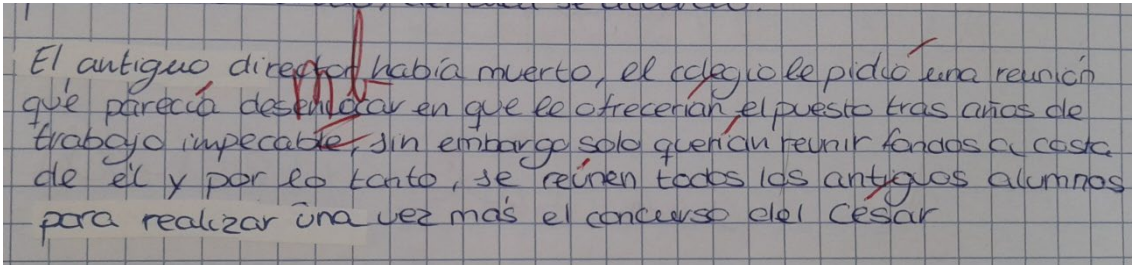 El antiguo director había muerto, el colegio le pidió una reunión
que parecía desembocar en que le ofrecerían, el puesto tras años de
trabajo impecable, sin embargo solo querían reunir fondos a costa
de él y por lo tanto, se reúnen todos los antiguos alumnos
para realizar una vez más el concurso del César